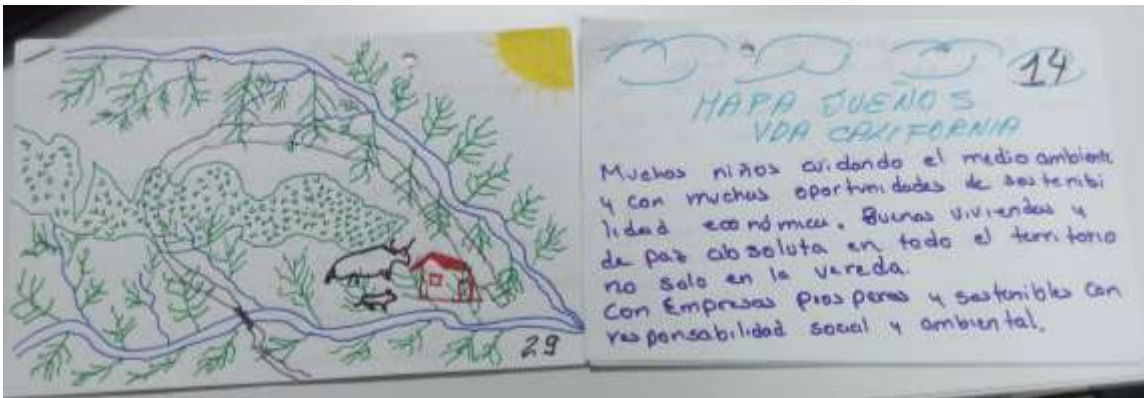 29
14
MAPA SUEÑOS
VDA CALIFORNIA
Muchos niños cuidando el medio ambiente
y con muchas oportunidades de sostenibi
lidad económica. Buenas viviendas y
de paz absoluta en todo el territorio
no solo en la vereda.
Con Empresas prosperas y sostenibles con
responsabilidad social y ambiental.